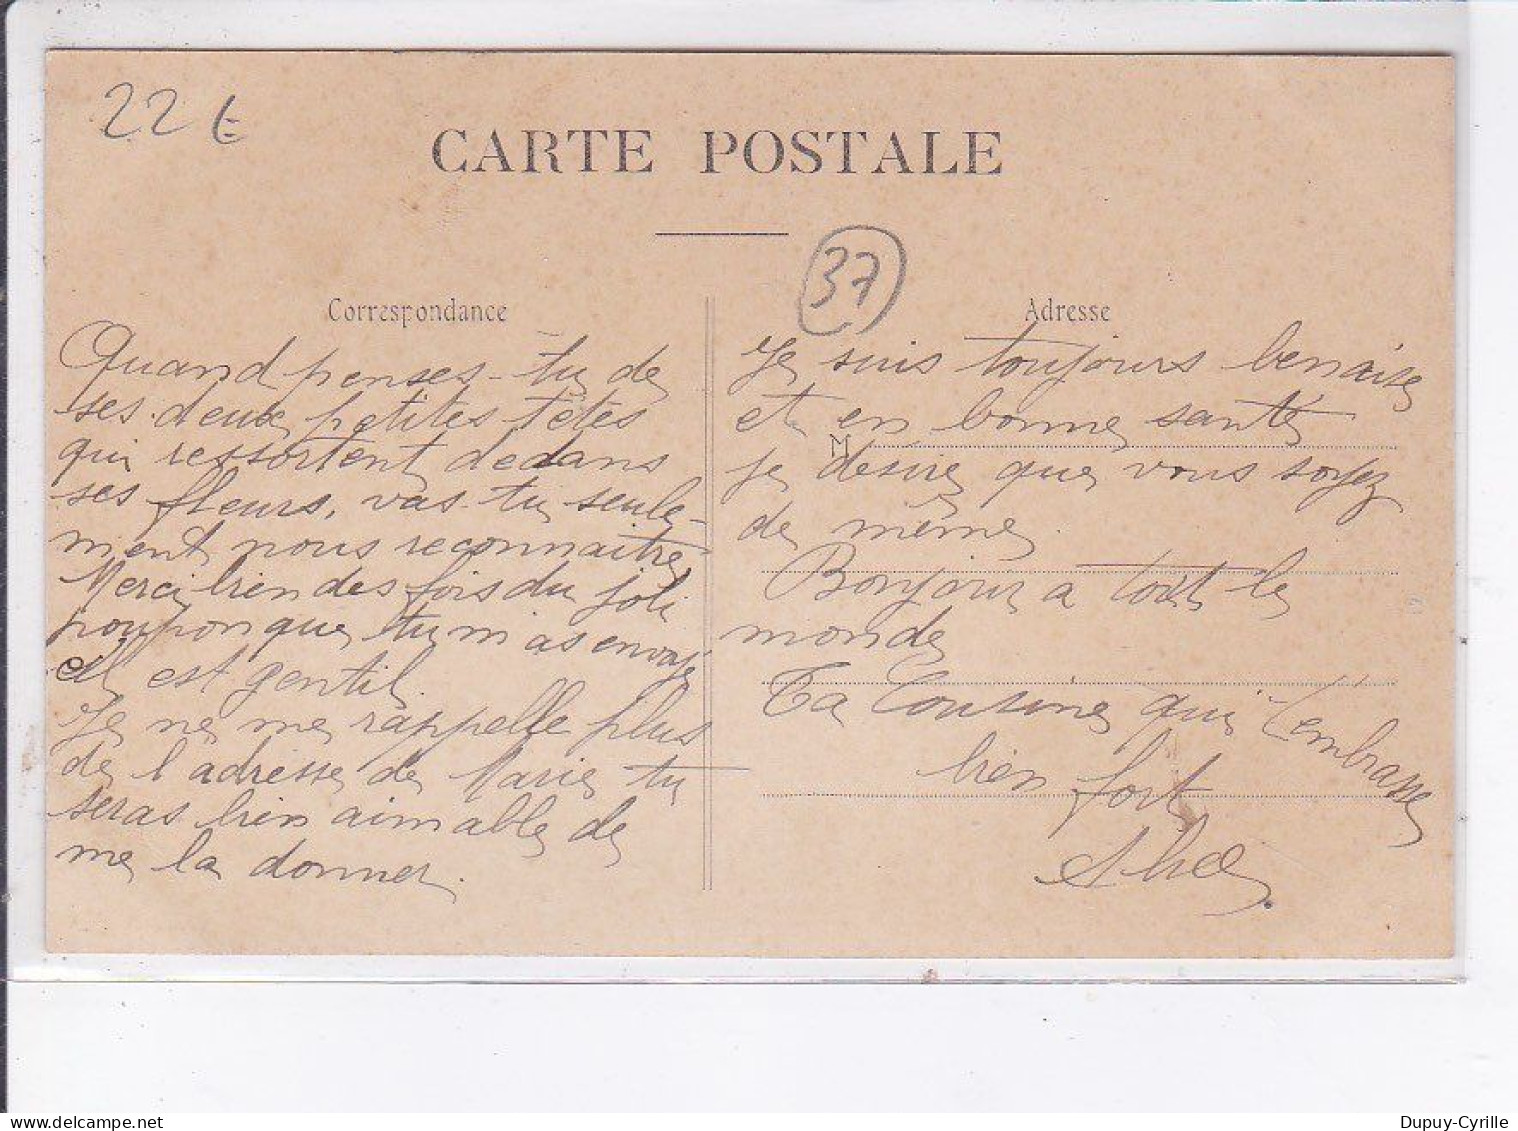 22 €
CARTE POSTALE
37
Correspondance
Quand penses-tu de
ses deux petites têtes
qui ressortent dedans
ses fleurs, vas-tu seule-
ment nous reconnaitre
Merci bien des fois du joli
poupon que tu m'as envoyé
il est gentil.
Je ne me rappelle plus
de l'adresse de Marie tu
seras bien aimable de
me la donner.
Adresse
Je suis toujours benaise
et en bonne santé
M
je désire que vous soyez
de même.
Bonjour a tout le
monde
Ta Cousine qui t'embrasse
bien fort
Dupuy-Cyrille